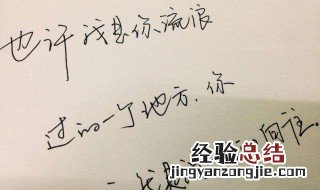 也许我想你流浪
过的一个地方，你
一
向往。
经验总结
www.jingyanzongjie.com